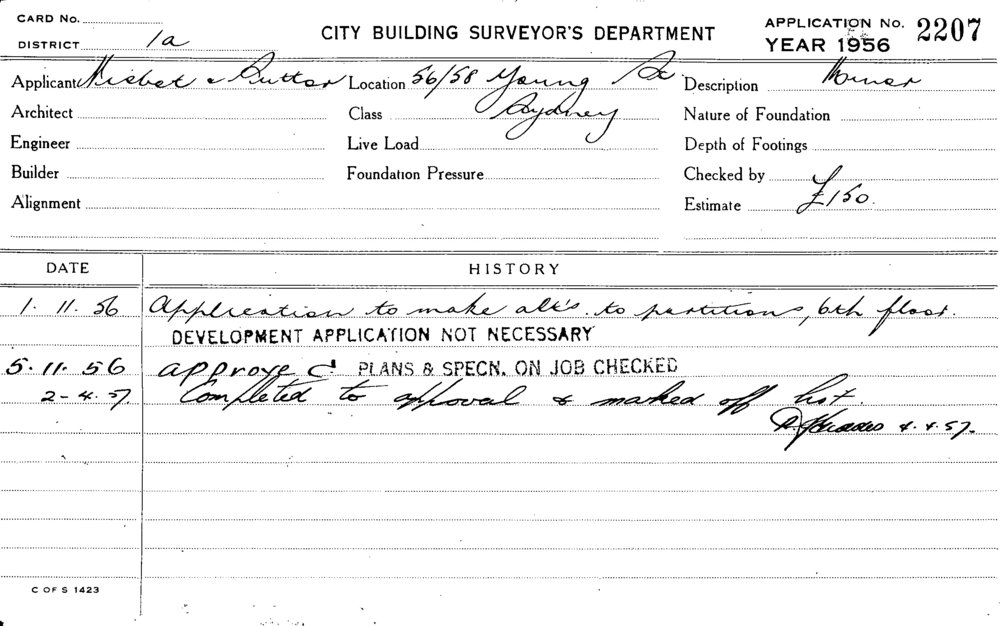 CARD No.
DISTRICT 1a
CITY BUILDING SURVEYOR'S DEPARTMENT
APPLICATION No. 2207
YEAR 1956
Applicant Nisbet & Location 56/58 Young St Description Minor
Architect Class Sydney Nature of Foundation
Engineer Live Load Depth of Footings
Builder Foundation Pressure Checked by
Alignment Estimate £150.
DATE HISTORY
1. 11. 56 Application to make alt's. to partitions, 6th floor.
DEVELOPMENT APPLICATION NOT NECESSARY
5. 11. 56 approved PLANS & SPECN. ON JOB CHECKED
2-4. 57. Completed to approval & marked off list.
4. 4. 57.
C OF S 1423